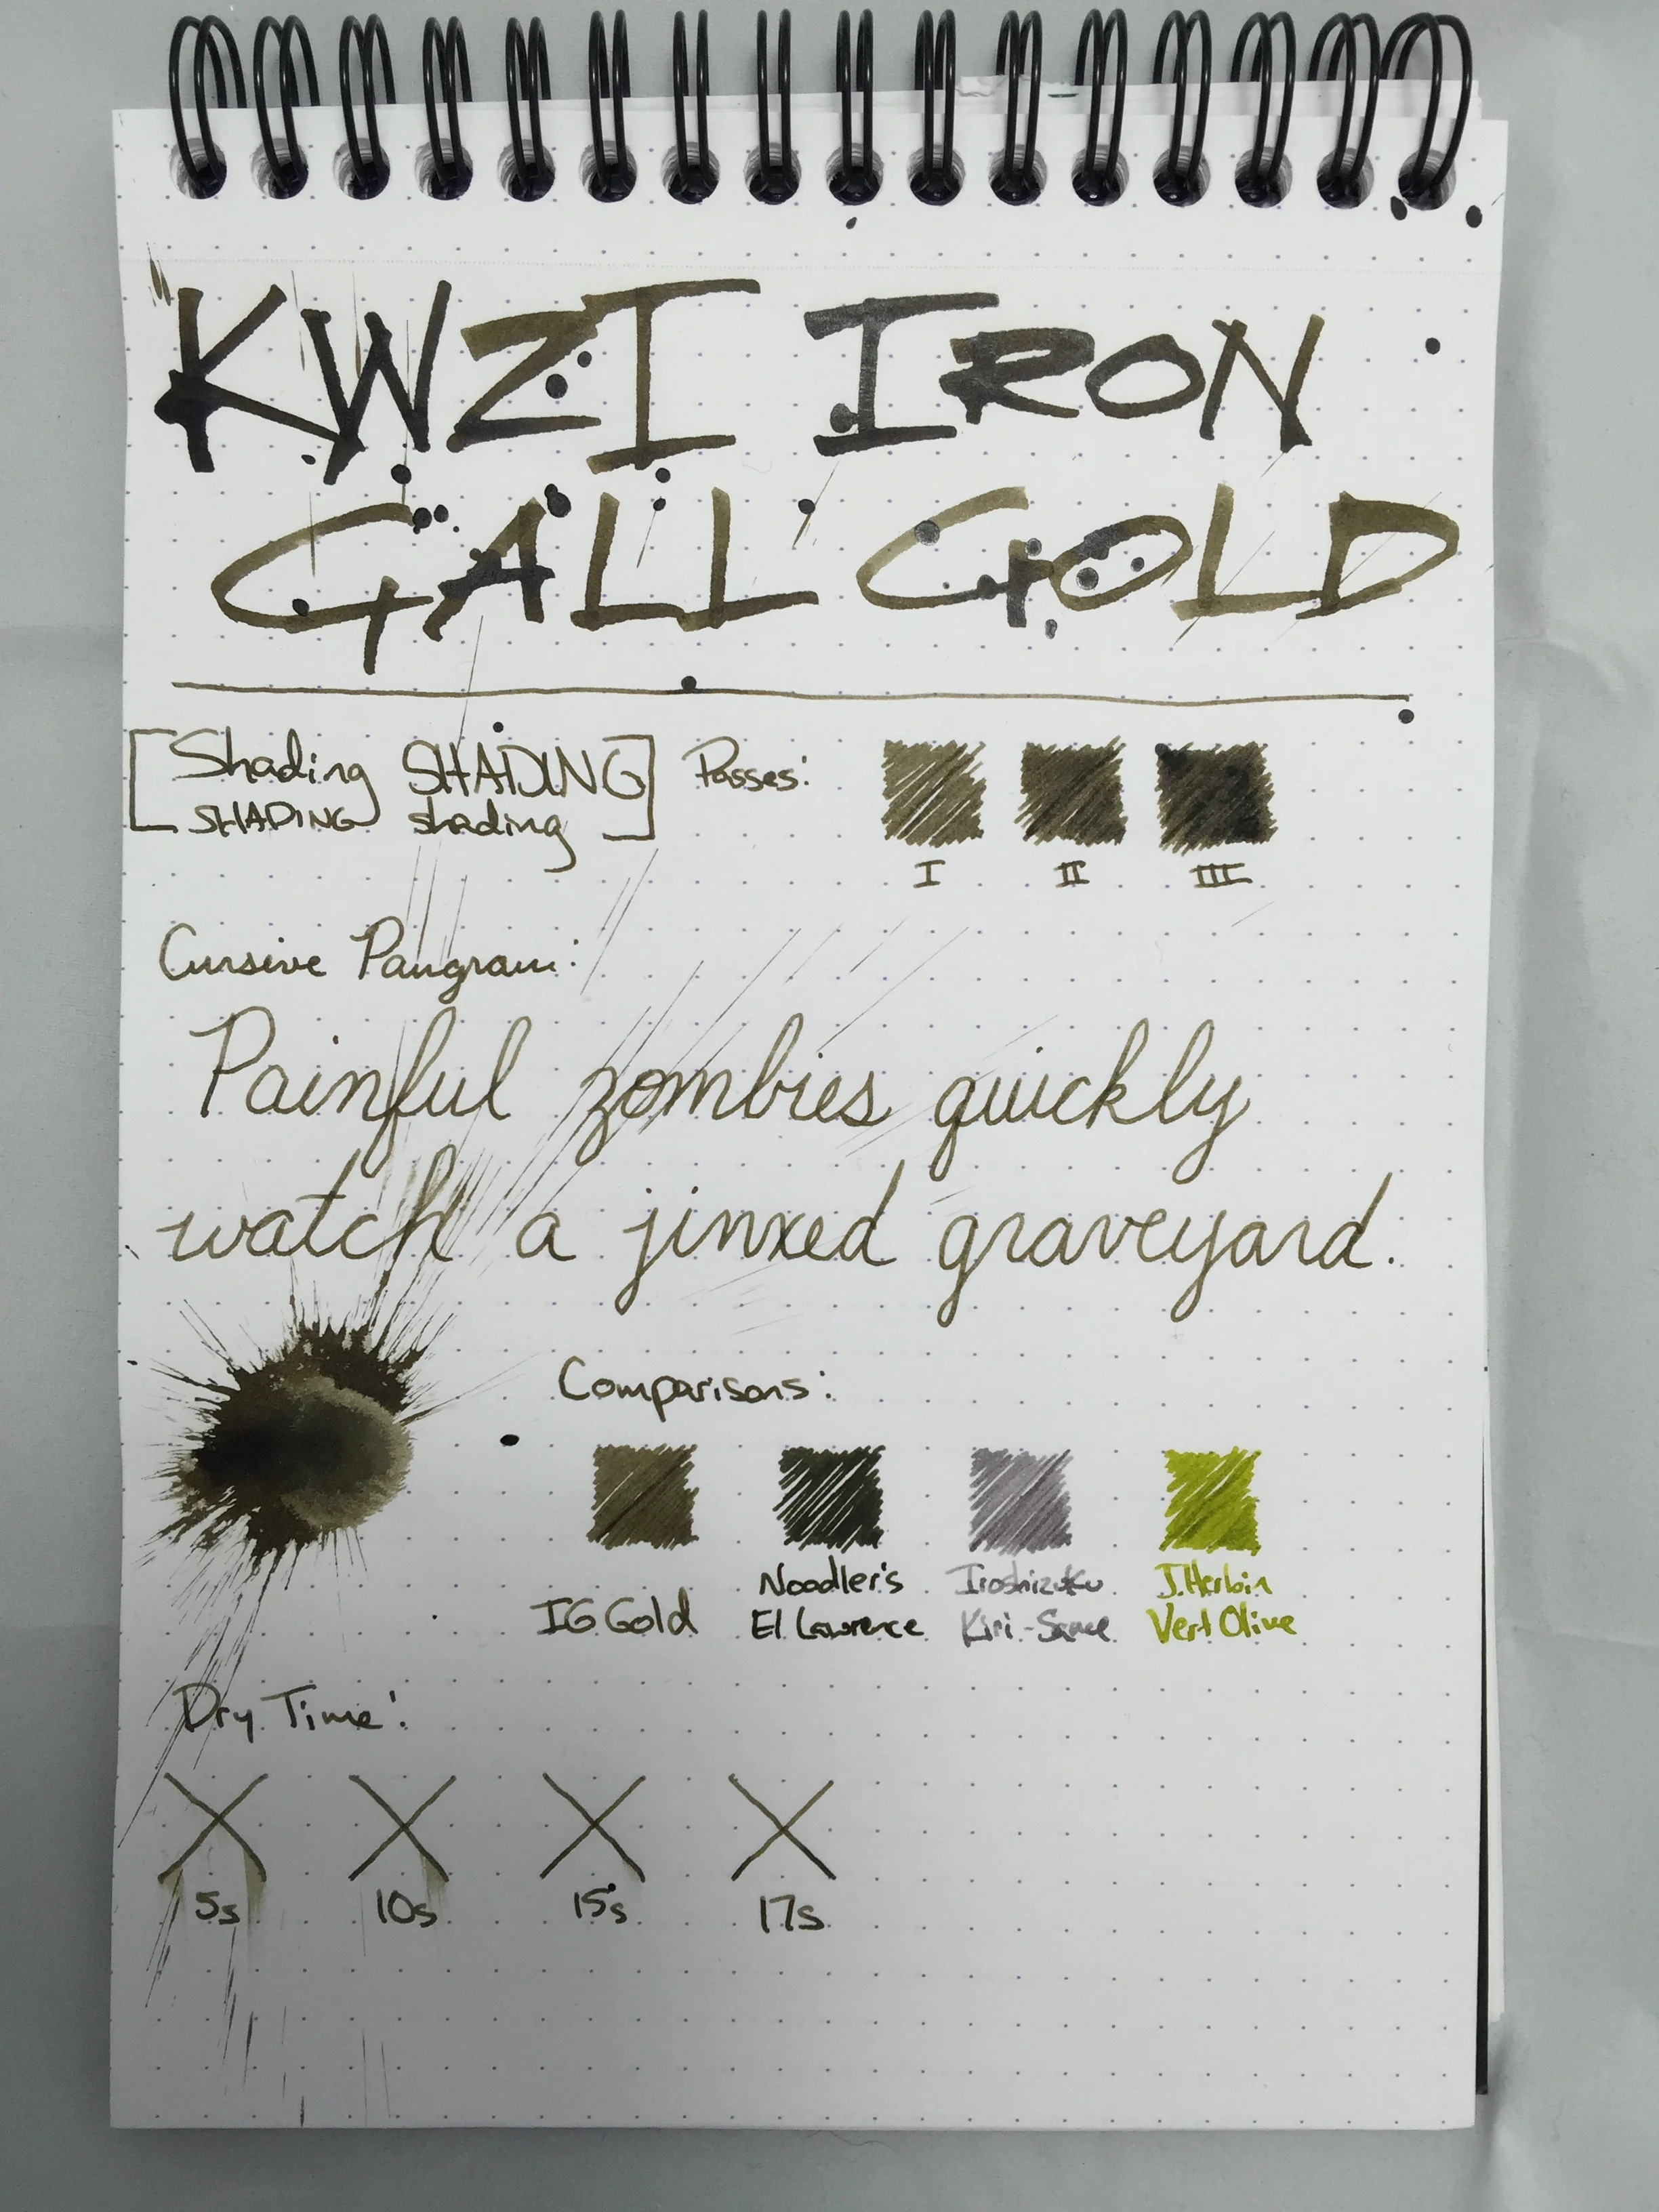 KWZI IRON
GALL GOLD
[Shading SHADING]
SHADING shading
Passes:
I II III
Cursive Pangram:
Painful zombies quickly
watch a jinxed graveyard.
Comparisons:
IG Gold
Noodler's
El Lawrence
Iroshizuku
Kiri-Same
J. Herbin
Vert Olive
Dry Time:
5s 10s 15s 17s